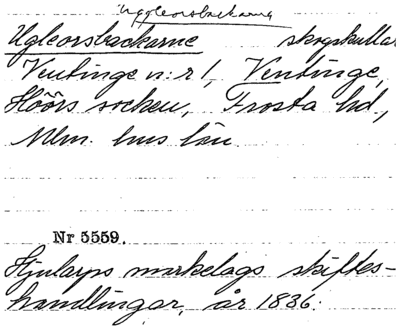 Uggleorsbackarna
Ugleorsbackarne skogskullar
Ventinge n:r 1, Ventinge,
Höörs socken, Frosta hd,
Mlm. hus län
Nr 5559.
Hjularps markelags skiftes-
handlingar, år 1836.